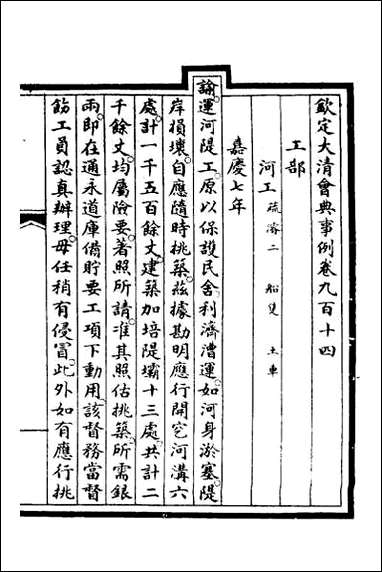 欽定大清會典事例卷九百十四
工部
河工 疏濬二 船隻 土車
嘉慶七年
諭運河隄工。原以保護民舍利濟漕運。如河身淤塞。隄
岸損壞。自應隨時挑築。茲據勘明應行開空河溝六
處。計一千五百餘丈。建築加培隄壩十三處。共計二
千餘丈。均屬險要。著照所請。准其照估挑築。所需銀
兩。即在通永道庫備貯要工項下動用。該督務當督
飭工員認真辦理。毋任稍有侵冒。此外如有應行挑